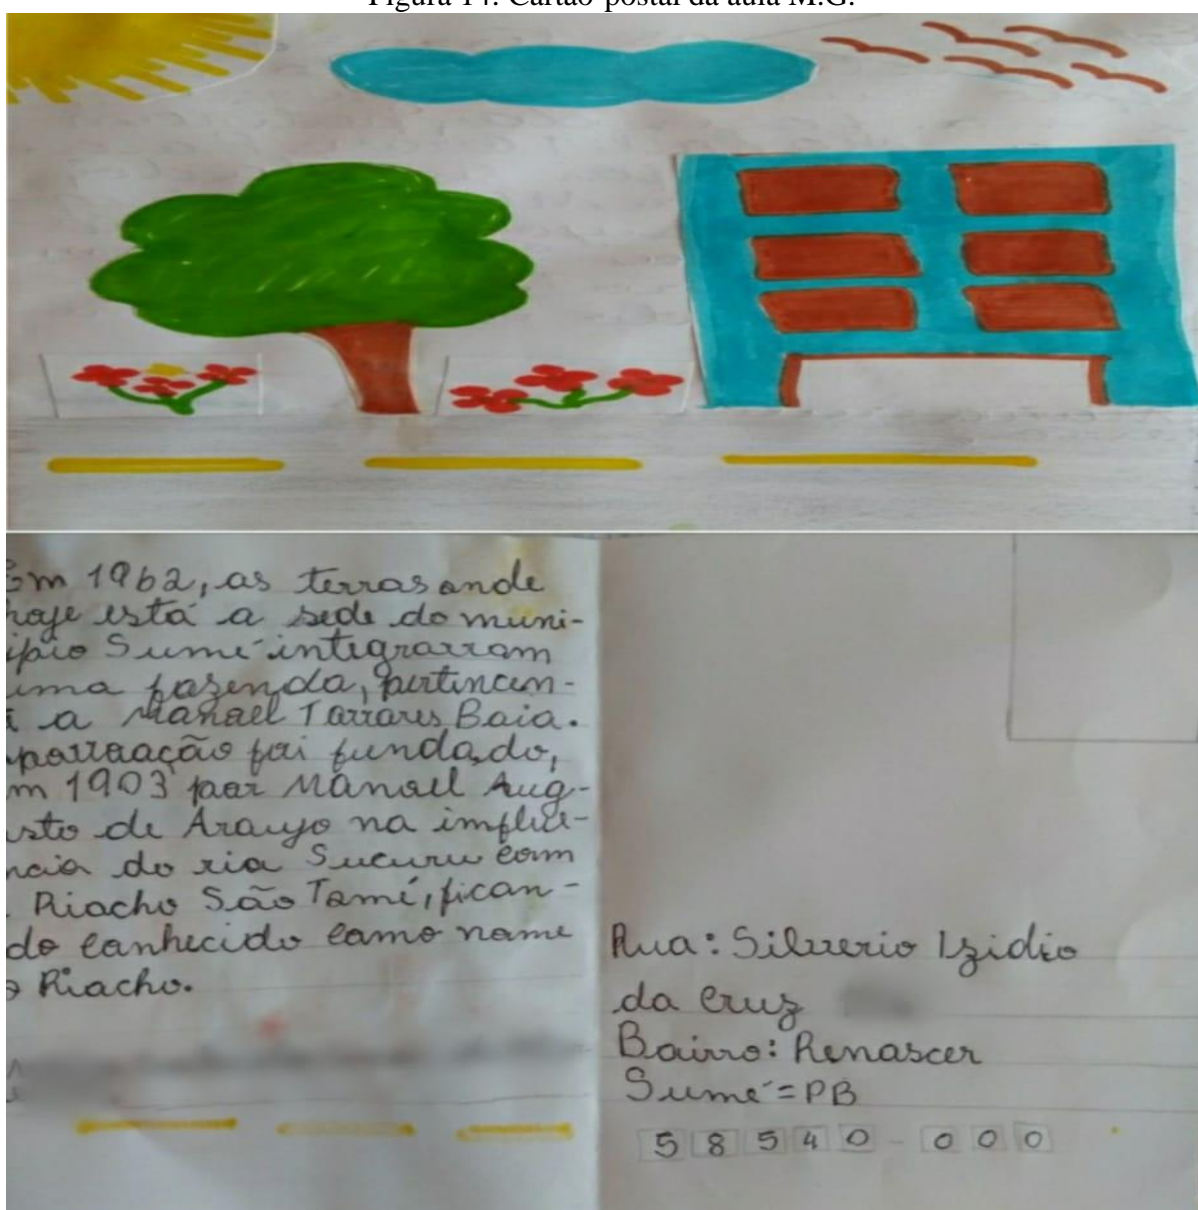 Figura 14: Cartão-postal da aula M.G.
Em 1962, as terras onde
hoje está a sede do muni-
ípio Sumé integravam
uma fazenda, pertincen-
a Manoel Tavares Baia.
povoação foi fundado,
m 1903 por Manoel Aug-
usto de Araujo na influê-
ncia do rio Sucuru com
Riacho São Tomé, fican-
do conhecido como nome
o Riacho.
Rua: Silverio Izidio
da Cruz
Bairro: Renascer
Sumé = PB
58540-000